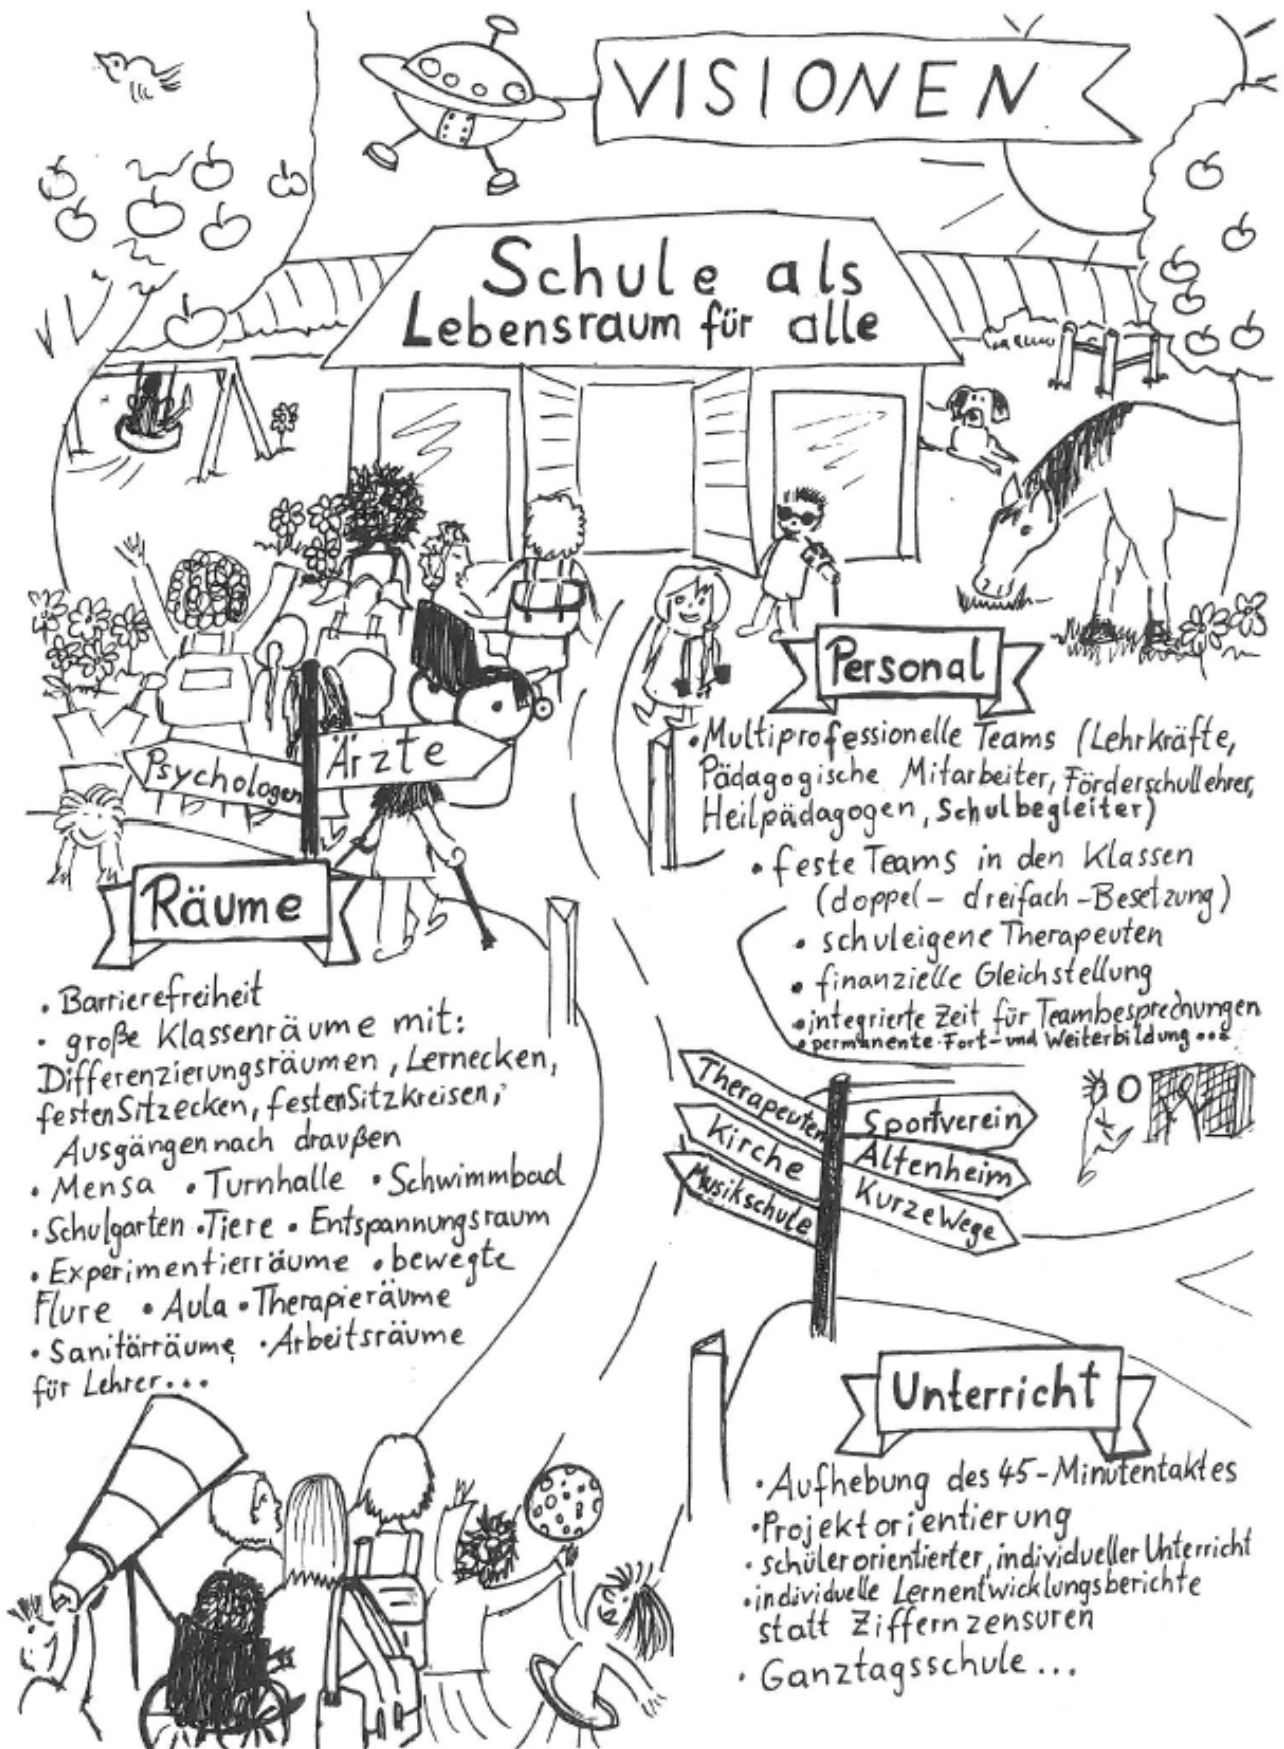 VISIONEN
Schule als
Lebensraum für alle
Personal
• Multiprofessionelle Teams (Lehrkräfte,
Pädagogische Mitarbeiter, Förderschullehrer,
Heilpädagogen, Schulbegleiter)
• feste Teams in den Klassen
(doppel- dreifach-Besetzung)
• schuleigene Therapeuten
• finanzielle Gleichstellung
• integrierte Zeit für Teambesprechungen
• permanente Fort- und Weiterbildung...
Psychologen
Ärzte
Räume
• Barrierefreiheit
• große Klassenräume mit:
Differenzierungsräumen, Lernecken,
festen Sitzecken, festen Sitzkreisen,
Ausgängen nach draußen
• Mensa • Turnhalle • Schwimmbad
• Schulgarten • Tiere • Entspannungsraum
• Experimentierräume • bewegte
Flure • Aula • Therapieräume
• Sanitärräume • Arbeitsräume
für Lehrer...
Therapeuten
Kirche
Musikschule
Sportverein
Altenheim
Kurze Wege
Unterricht
• Aufhebung des 45-Minutentaktes
• Projektorientierung
• schülerorientierter, individueller Unterricht
• individuelle Lernentwicklungsberichte
statt Ziffernzensuren
• Ganztagsschule...